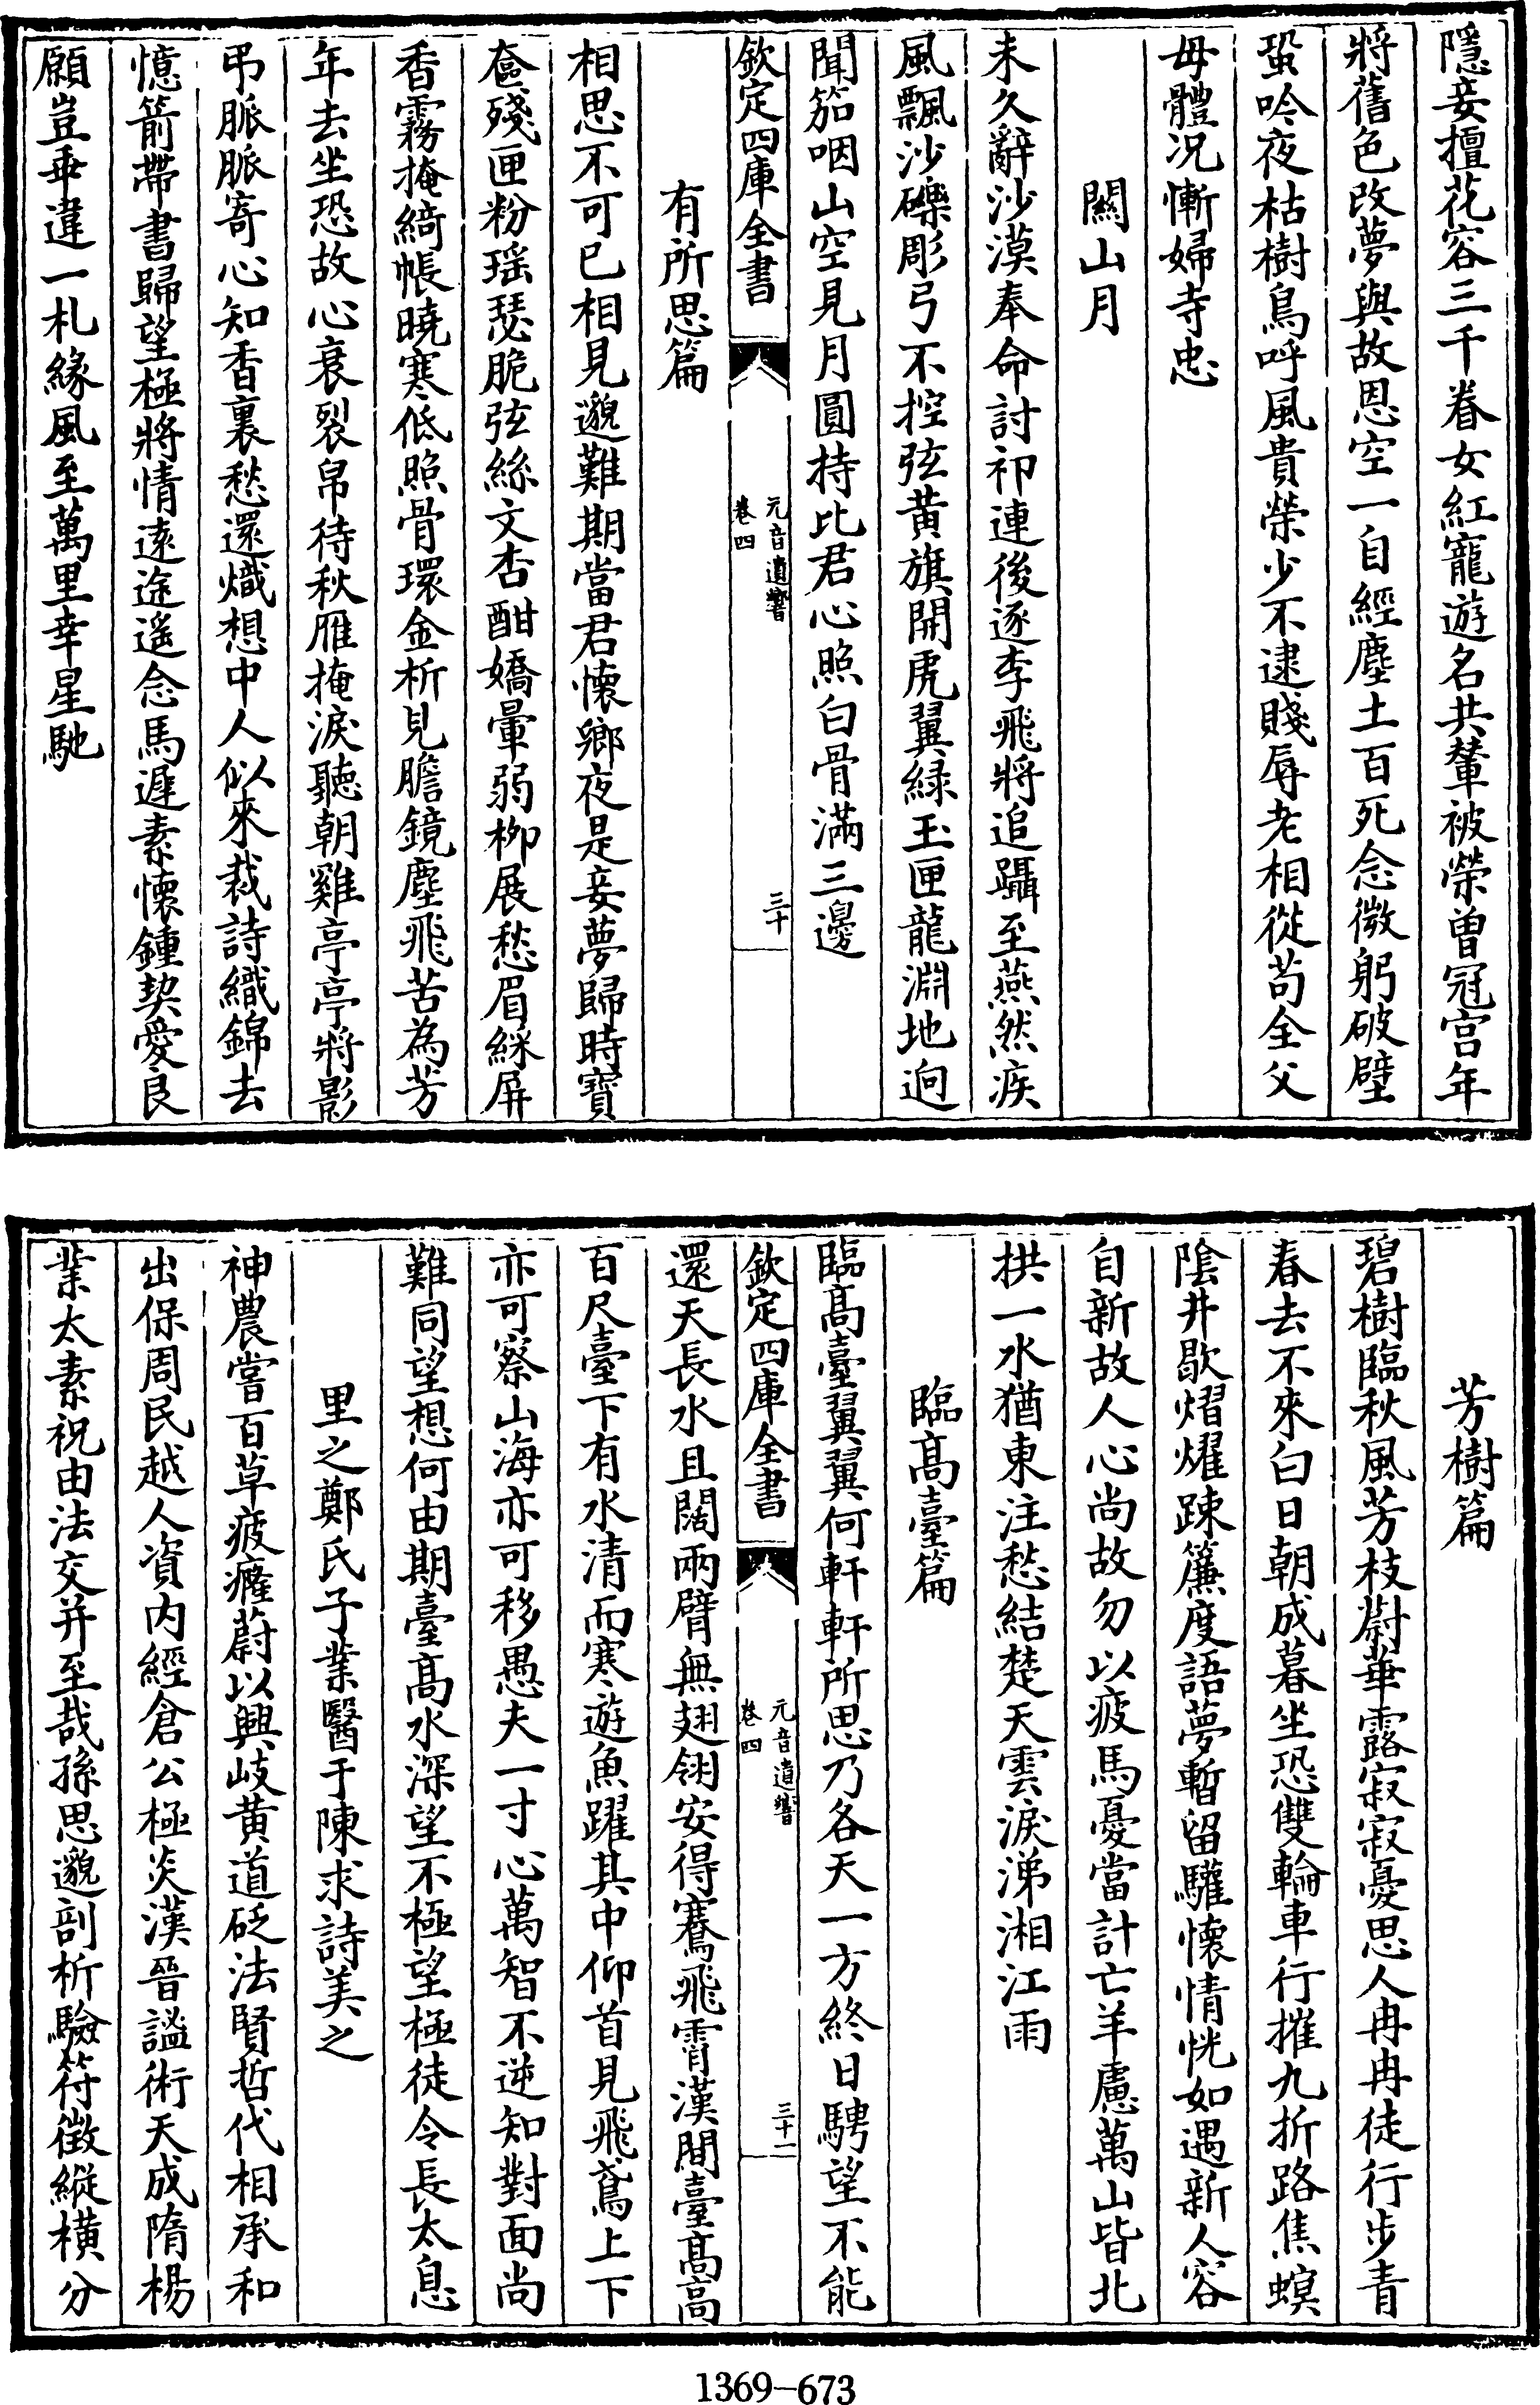 隱妾擅花容三千眷女紅寵遊名共輦被榮曽冠宫年
將舊色改夢與故恩空一自經塵土百死念微躬破壁
蛩吟夜枯樹鳥呼風貴榮少不逮賤辱老相從苟全父
母體况慚婦寺忠
關山月
未久辭沙漠奉命討祁連後逐李飛將追躡至燕然疾
風飄沙礫彫弓不控弦黄旗開虎翼緑玉匣龍淵地迥
聞笳咽山空見月圓持比君心照白骨滿三邊
欽定四庫全書
元音遺響
卷四
三十
有所思篇
相思不可已相見邈難期當君懷鄉夜是妾夢歸時寳
奩殘匣粉瑶瑟脆弦絲文杏酣嬌暈弱栁展愁眉綵屏
香霧掩綺帳曉寒低照骨環金析見膽鏡塵飛苦為芳
年去坐恐故心衰裂帛待秋雁掩淚聽朝雞亭亭將影
弔脈脈寄心知香裏愁還熾想中人似來裁詩織錦去
憶箭帶書歸望極將情逺途遥念馬遲素懷鍾契愛良
願豈乖違一札緣風至萬里幸星馳
芳樹篇
碧樹臨秋風芳枝蔚華露寂寂憂思人冉冉徒行步青
春去不來白日朝成暮坐恐雙輪車行摧九折路焦螟
陰井歇熠燿疎簾度語夢暫留驩懷情恍如遇新人容
自新故人心尚故勿以疲馬憂當計亡羊慮萬山皆北
拱一水猶東注愁結楚天雲淚涕湘江雨
臨髙臺篇
臨髙臺翼翼何軒軒所思乃各天一方終日騁望不能
欽定四庫全書
元音遺響
卷四
三十一
還天長水且闊兩臂無翅翎安得騫飛霄漢間臺髙髙
百尺臺下有水清而寒遊魚躍其中仰首見飛鳶上下
亦可察山海亦可移愚夫一寸心萬智不逆知對面尚
難同望想何由期臺髙水深望不極望極徒令長太息
里之鄭氏子業醫于陳求詩美之
神農嘗百草疲癃蔚以興岐黄道砭法賢哲代相承和
出保周民越人資内經倉公極炎漢晉謐術天成隋楊
業太素祝由法交并至哉孫思邈剖析驗符徵縱横分
1369-673